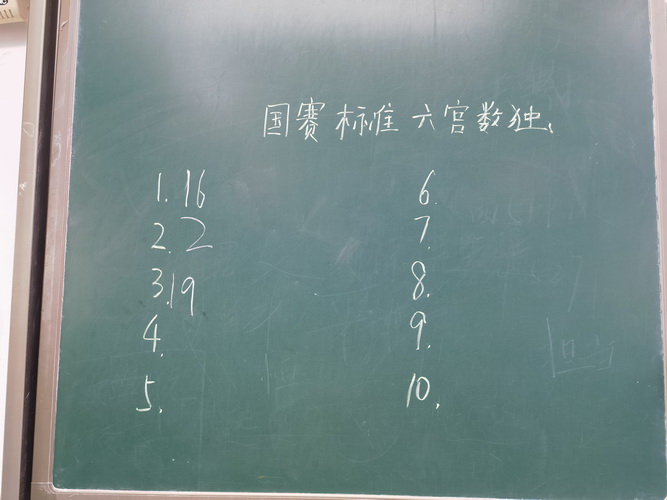 国赛标准六宫数独
1. 16
2. 2
3. 19
4.
5.
6.
7.
8.
9.
10.